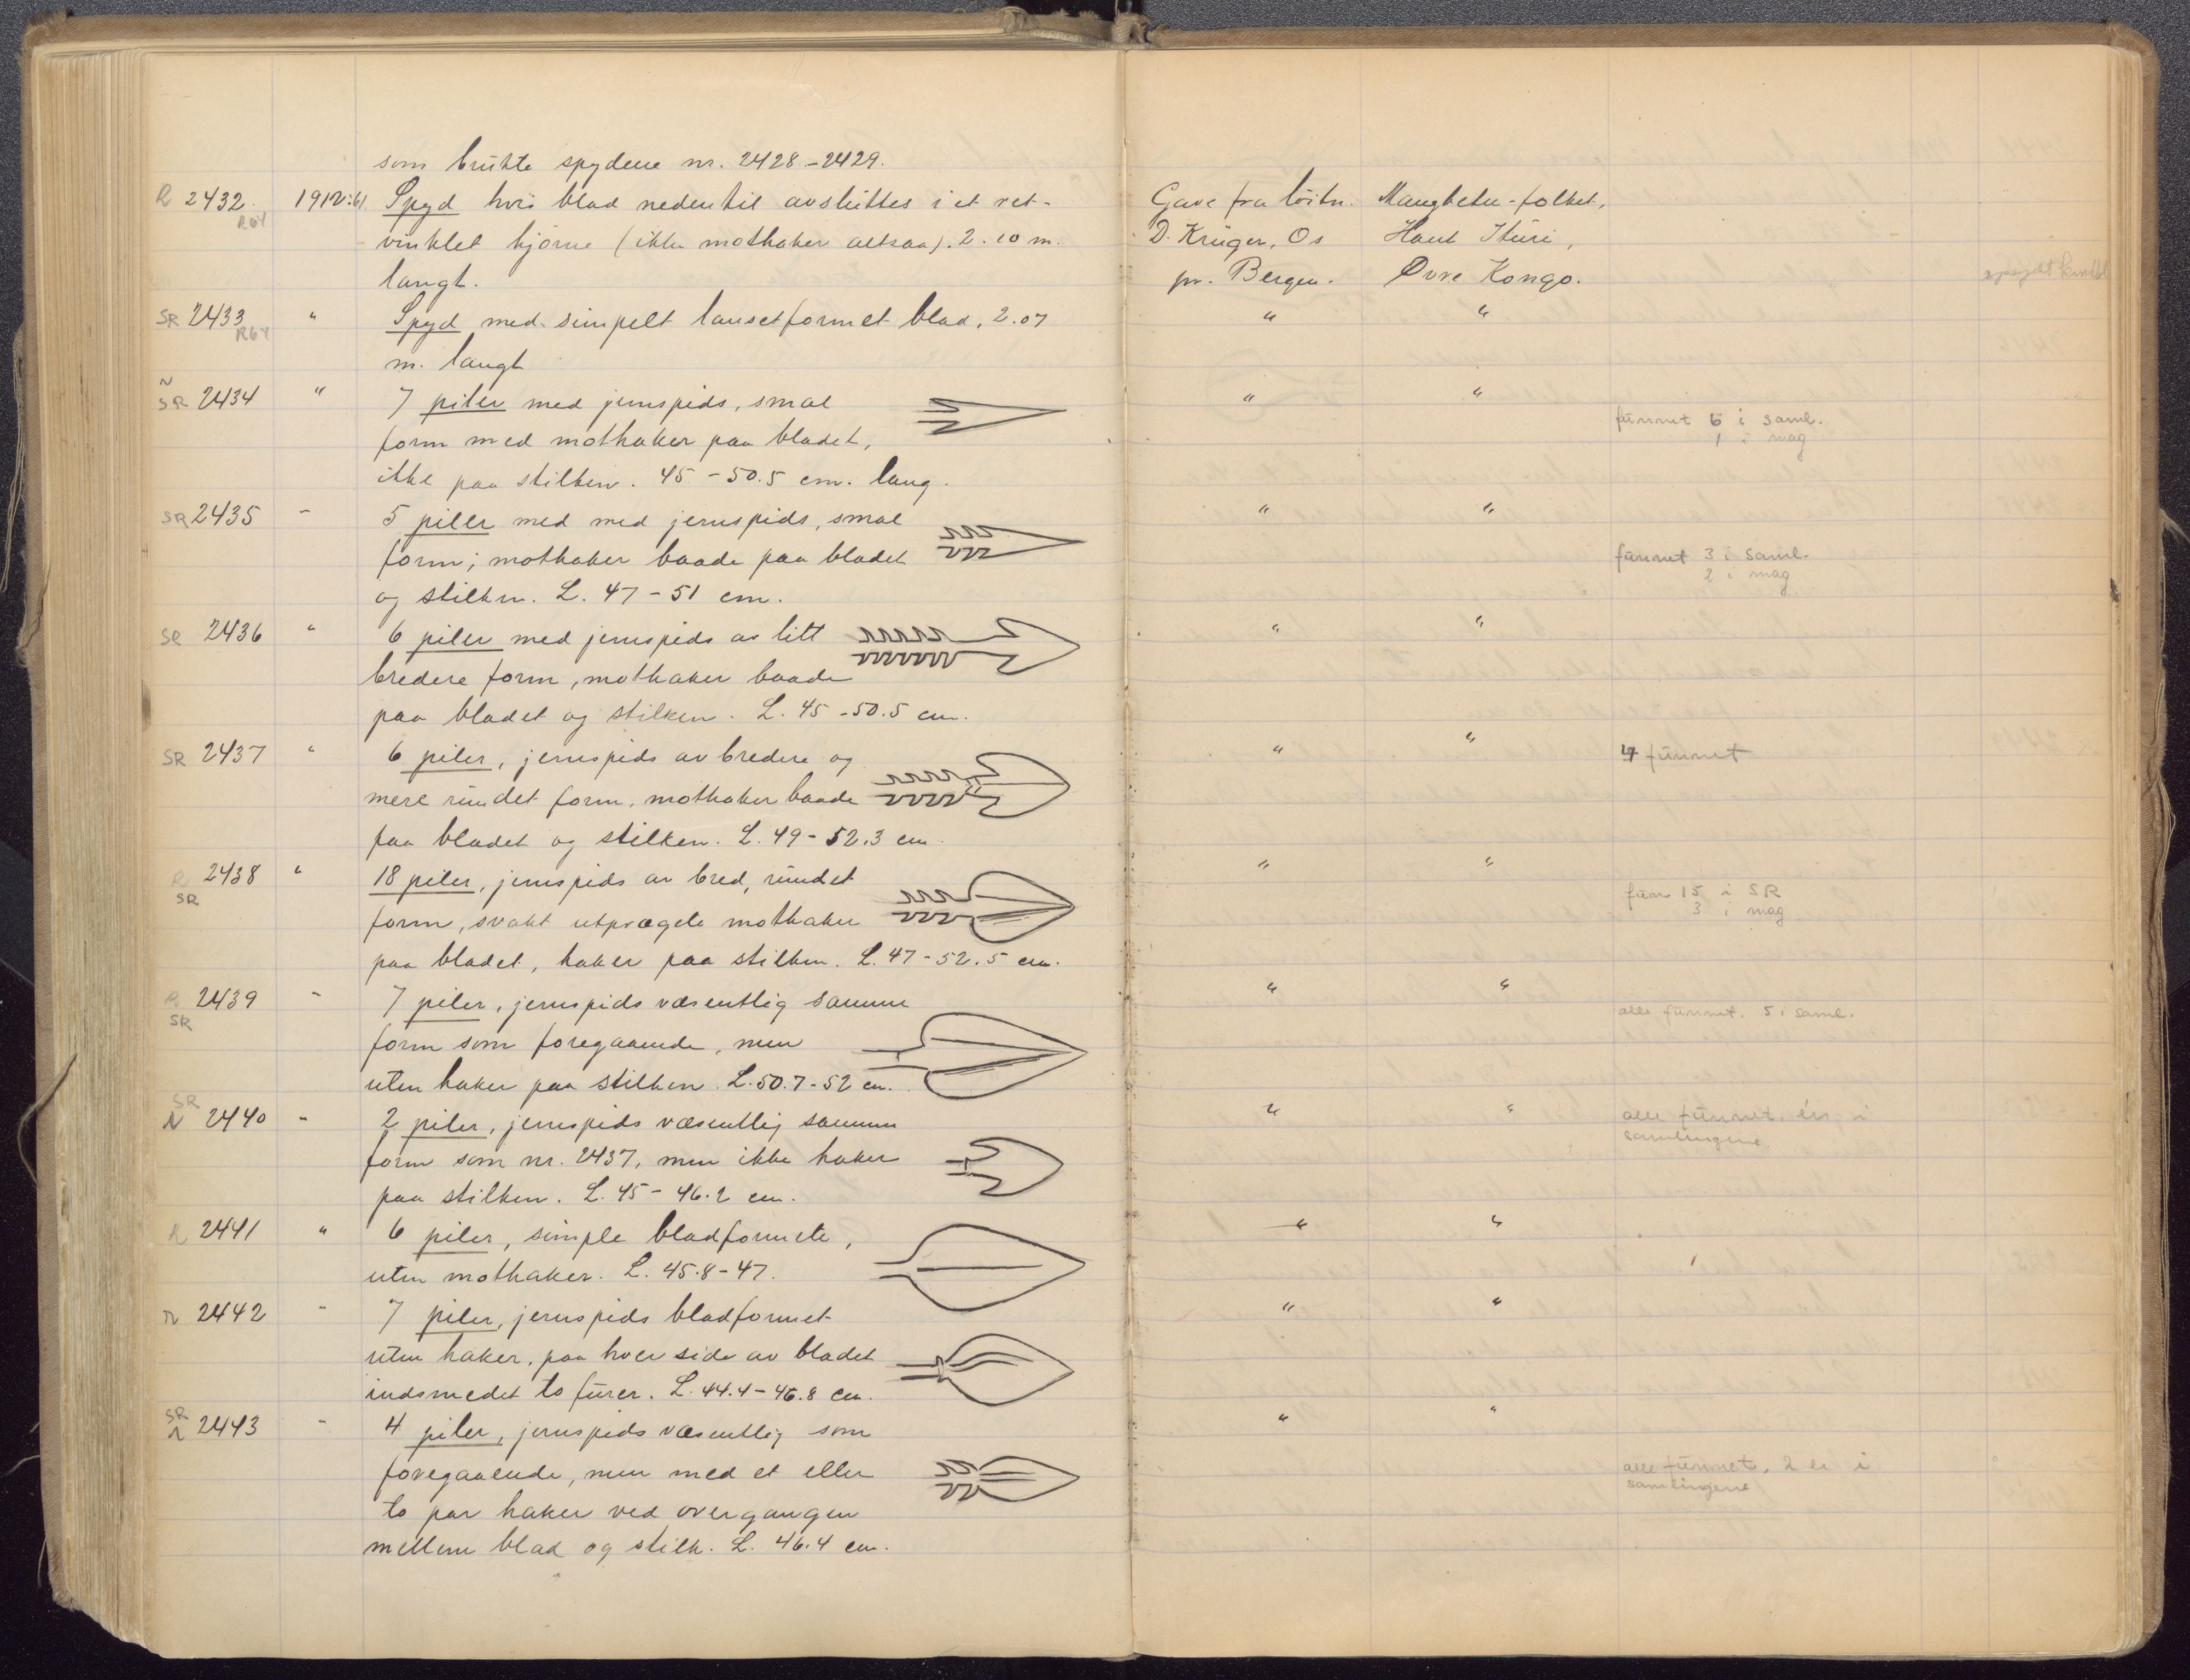 som brukte spydene nr. 2428-2429.
R 2432. 1912:61. Spyd hvis blad nedentil avsluttes i et ret- Gave fra löitn. Mangbetu-folket,
R64
vinklet hjörne (ikke mothaker altsaa). 2.10 m. D. Krüger, Os Haut Ituri,
langt. pr. Bergen. Øvre Kongo.
SR 2433 " Spyd med simpelt lansetformet blad, 2.07 " "
R64
m. langt
N
SR 2434 " 7 piler med jernspids, smal " "
funnet 6 i saml.
form med mothaker paa bladet,
1 i mag
ikke paa stilken. 45-50.5 cm. lang.
SR 2435 " 5 piler med med jernspids, smal " "
form; mothaker baade paa bladet funnet 3 i saml.
2 i mag
og stilken. L. 47-51 cm.
SR 2436 " 6 piler med jernspids av litt " "
bredere form, mothaker baade
paa bladet og stilken. L. 45-50.5 cm.
SR 2437 " 6 piler, jernspids av bredere og " " 4 funnet
mere rundet form, mothaker baade
paa bladet og stilken. L. 49-52.3 cm.
R 2438 " 18 piler, jernspids av bred, rundet " "
SR fun 15 i SR
form, svakt utprægete mothaker 3 i mag
paa bladet, haker paa stilken. L. 47-52.5 cm.
R 2439 " 7 piler, jernspids væsentlig samme " "
SR alle funnet. 5 i saml.
form som foregaaende, men
uten haker paa stilken. L. 50.7-52 cm.
SR
N 2440 " 2 piler, jernspids væsentlig samme " " alle funnet, én i
samlingene.
form som nr. 2437, men ikke haker
paa stilken. L. 45-46.2 cm.
R 2441 " 6 piler, simple bladformete, " "
uten mothaker. L. 45.8-47.
R 2442 " 7 piler, jernspids bladformet " "
uten haker, paa hver side av bladet
indsmedet to furer. L. 44.4-46.8 cm.
SR
R 2443 " 4 piler, jernspids væsentlig som " "
foregaaende, men med et eller alle funnet, 2 er i
samlingene
to par haker ved overgangen
mellem blad og stilk. L. 46.4 cm.